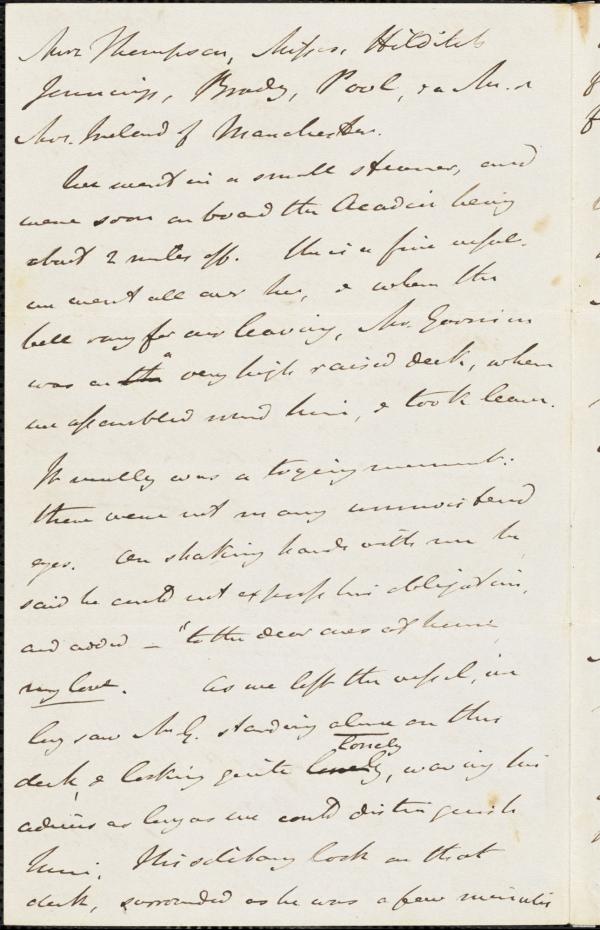 Mrs. Thompson, Misses. Hilditch
Jennings, Brady, Pool, & a Mr. &
Mrs. Ireland of Manchester.
We went in a small steamer, and
were soon on board the Acadia being
about 2 miles off. She is a fine vessel.
we went all over her, & when the
bell rang for our leaving, Mr. Garrison
was on the a very high raised deck, when
we assembled round him, & took leave.
It really was a trying moment:
there were not many unmoistened
eyes. On shaking hands with me he
said he could not express his obligations,
and added — "to the dear ones at home
my love. As we left the vessel, we
long saw Mr G. standing alone on this
deck, & looking quite lonely lonely, waving his
adieus as long as we could distinguish
him. This solitary look on that
deck, surrounded as he was a few minutes